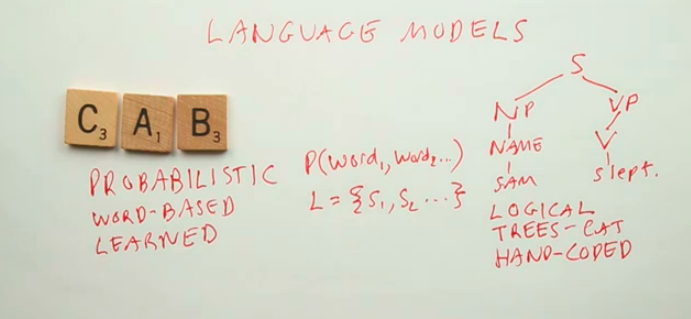 LANGUAGE MODELS
C3 A1 B3
PROBABILISTIC
WORD-BASED
LEARNED
P(word1, word2...)
L = {S1, S2 ...}
S
NP VP
NAME V
SAM slept.
LOGICAL
TREES-CAT
HAND-CODED